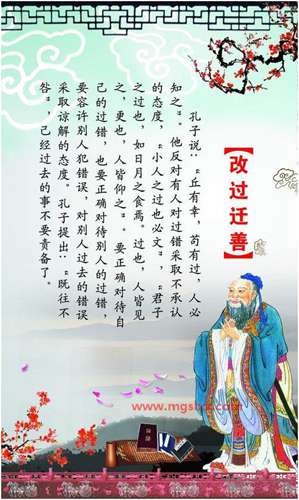 【改过迁善】
孔子说：“丘有幸，苟有过，人必
知之”。他反对有人对过错采取不承认
的态度，“小人之过也必文”，“君子
之过也，如日月之食焉。过也，人皆见
之，更也，人皆仰之”。要正确对待自
己的过错，也要正确对待别人的过错，
要容许别人犯错误，对别人过去的错误
采取谅解的态度。孔子提出：“既往不
咎”，己经过去的事不要责备了。